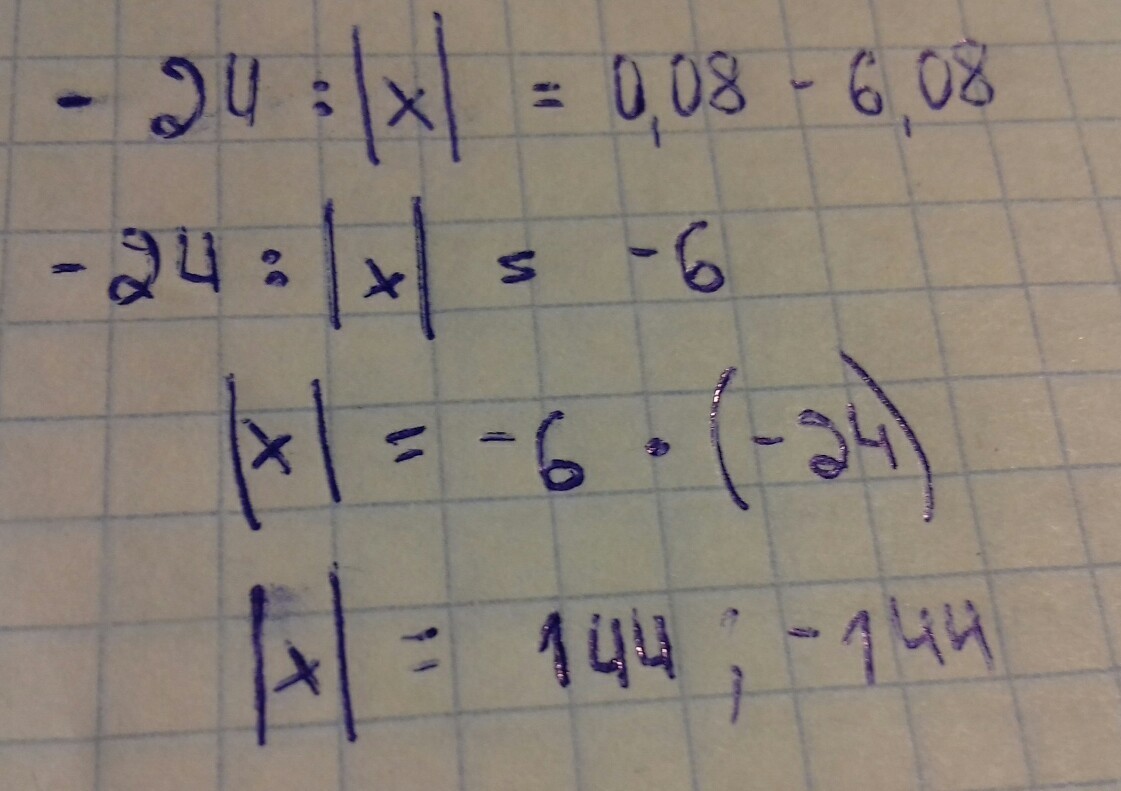 - 24 : |x| = 0,08 - 6,08
- 24 : |x| = -6
|x| = -6 · (-24)
|x| = 144 ; -144